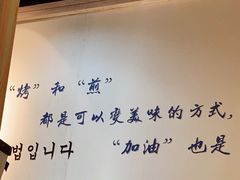 “烤” 和 “煎”
都是可以变美味的方式,
법입니다 “加油” 也是